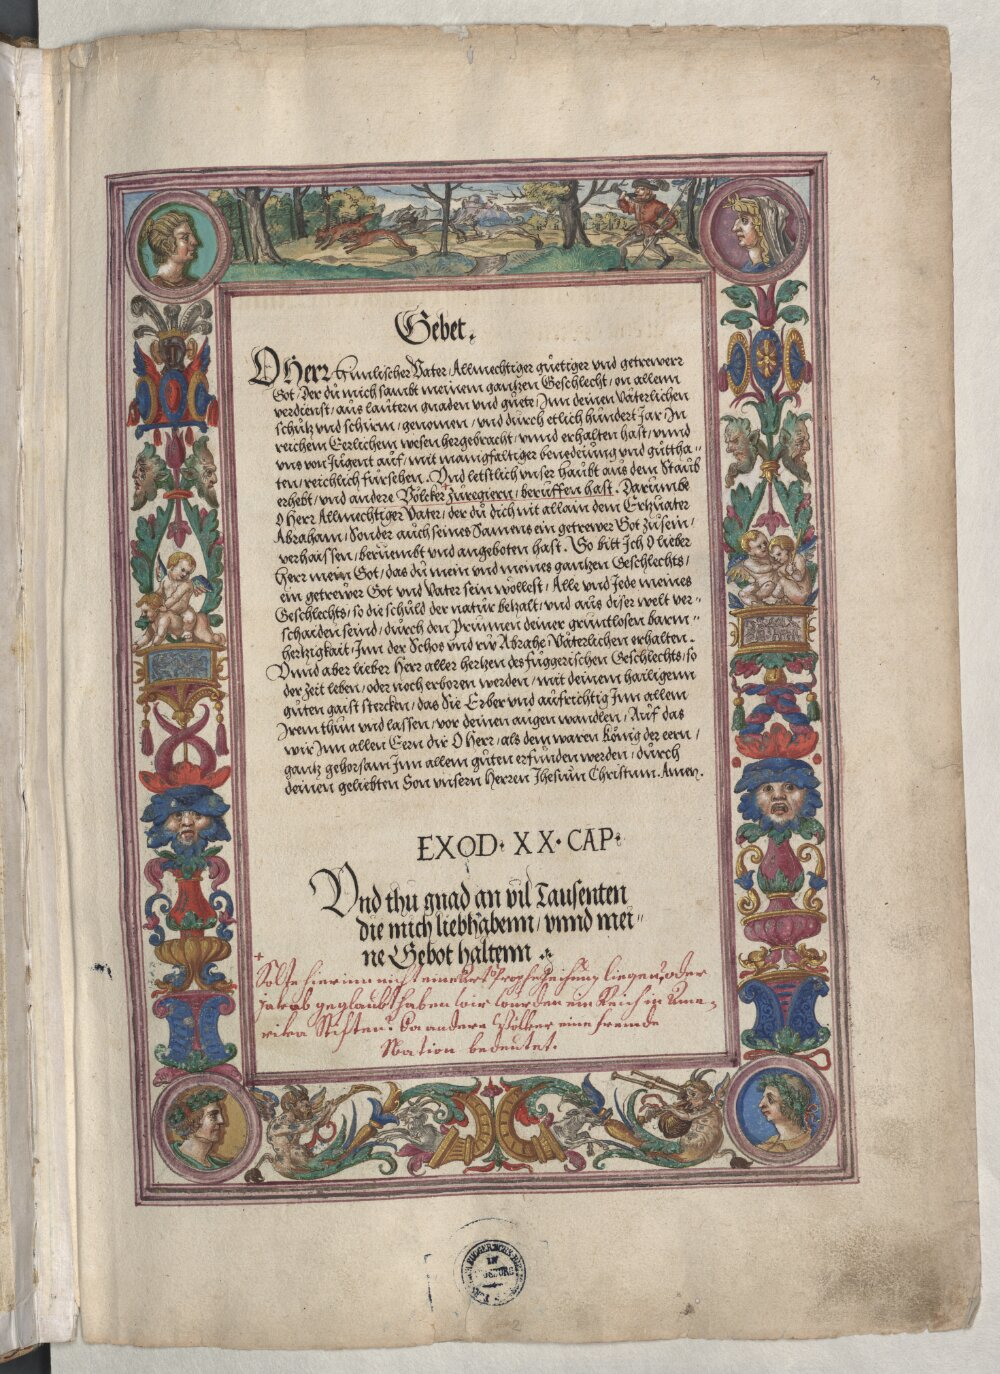 Gebet.
O Herr Himlischer Vater/ Allmechtiger güetiger vnd getrewerr
Got/ Der du mich sambt meinem gantzen Geschlecht/ on allem
verdienst/ aus lautern gnaden vnd guete/ Jnn deinen Väterlichen
schutz vnd schirm/ genomen/ vnd durch etlich hundert Jar/ Jn
reichem Eerlichem wesen hergebracht/ vnnd erhalten hast/ vnnd
vns von Jugent auf/ mit manigfaltiger benedeiung vnd guttha=
ten/ reichlich fürsehen. Vnd letstlich vnser haubt aus dem Staub
erhebt/ vnd andere Völcker + zuregiern/ berüffen hast. Darumbe
O Herr Allmechtiger Vater/ der du dich nit allain dem Ertzuater
Abraham/ Sonder auch seines Samens ein getrewer Got zu sein/
verhaissen/ beruembt vnd angeboten hast. So bitt Jch O lieber
Herr mein Got/ das du mein vnd meines gantzen Geschlechts/
ein getrewer Got vnd Vater sein wöllest/ Alle vnd Jede meines
Geschlechts/ so die schuld der natur betzalt/ vnd aus diser welt ver=
schaiden seind/ durch den Prunnen deiner gruntlosen barm=
hertzigkait/ Jnn der Schos vnd rüw Abrahe/ Väterlichen erhalten.
Vnnd aber lieber Herr aller hertzen des fuggerischen Geschlechts/ so
der Zeit leben/ oder noch erboren werden/ mit deinem hailigenn
guten gaist stercken/ das Sie Erber vnd aufrichtig Jnn allem
Jrem thun vnd lassen/ vor deinen augen wandlen/ Auf das
wir Jnn allen Eern dir O Herr/ als dem waren König der eern/
gantz gehorsam Jnn allem guten erfunden werden/ durch
deinen geliebten Son vnsern Herren Jhesum Christum. Amen.
EXOD· XX· CAP·
Vnd thu gnad an vil Tausenten
die mich liebhabenn/ vnnd mei=
ne Gebot haltenn.
+
Solte hierinn nicht eine Art Prophezeihung liegen, oder
Jacob geglaubt haben wir wurden ein Reich in Ame=
rika Stiften? Da andere Völker eine fremde
Nation bedeutet.
IN